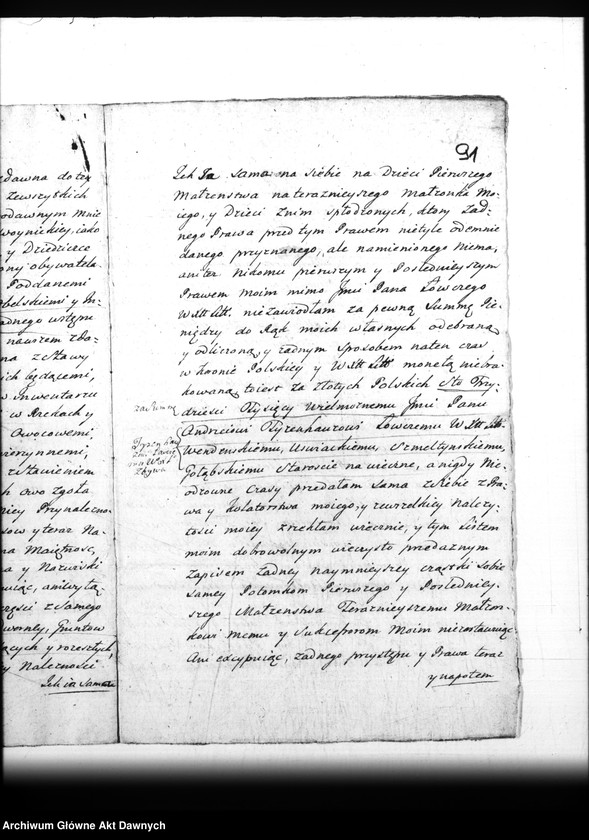 edawna do tey
zewszystkich
odawnym mnie
woynickiey, iako
y Dziedziczce
ony obywatela
Poddanemi
belskiemi y In-
adnego wstępu
nawrem zbo-
na zestawy
ich będącemi,
w inwentarzu
w Rzekach y
Owocowemi,
wierzynnemi,
zstawieniem
h owo zgoła
niey Przynależno-
sow y teraz Na-
na Maiętnosc,
a y Nazwiski
uiąc, ani wyłą-
części z samego
wornły, Gruntow
ących y rozeszłych
y Należnosci
Jch ia Sama
91
Jch Ja Sama na siebie na Dzieci Pierwszego
Małżenstwa na teraznieyszego Małżonka Mo-
iego, y Dzieci z nim spłodzonych, ktory żad-
nego Prawa przed tym Prawem nietylo odemnie
danego przyznanego, ale namienionego Niema,
ani też Nikomu pierwszym y Poslednieyszym
Prawem moim mimo Jmci Pana Łowczego
W. Xtt. Litt. niezawiodłam za pewną Summę Pie-
niędzy do Rąk moich własnych odebraną
y odliczoną, y żadnym sposobem naten czas
w Koronie Polskiey y W. Xtt Litt monetą niebra-
kowaną toiest za Złotych Polskich Sto Trzy-
dziesci Tysięcy Wielmożnemu Jmci Panu
Andrzeiowi Tyzenhauzowi Łowczemu W. Xtt. Lit.
Wendenskiemu, Uswiackiemu, Szmeltynskiemu,
Gołąbskiemu Staroscie na wieczne, a nigdy Nie-
odzowne Czasy przedałam sama z siebie z Pra-
wa y Kolatorstwa moiego, y z wszelkiey Należy-
tosci moiey zrzekłam wiecznie, y tym Listem
moim dobrowolnym wieczysto przedażnym
zapisem żadney naymnieyszey cząstki sobie
samey Potomkom Pierwszego y Posledniey-
szego Małżenstwa Teraznieyszemu Małżon-
kowi memu y Sukcessorom Moim niezostawuiąc
Ani excypuiąc, żadnego przystępu y Prawa teraz
y napotem
za Summę
Tyzenhau